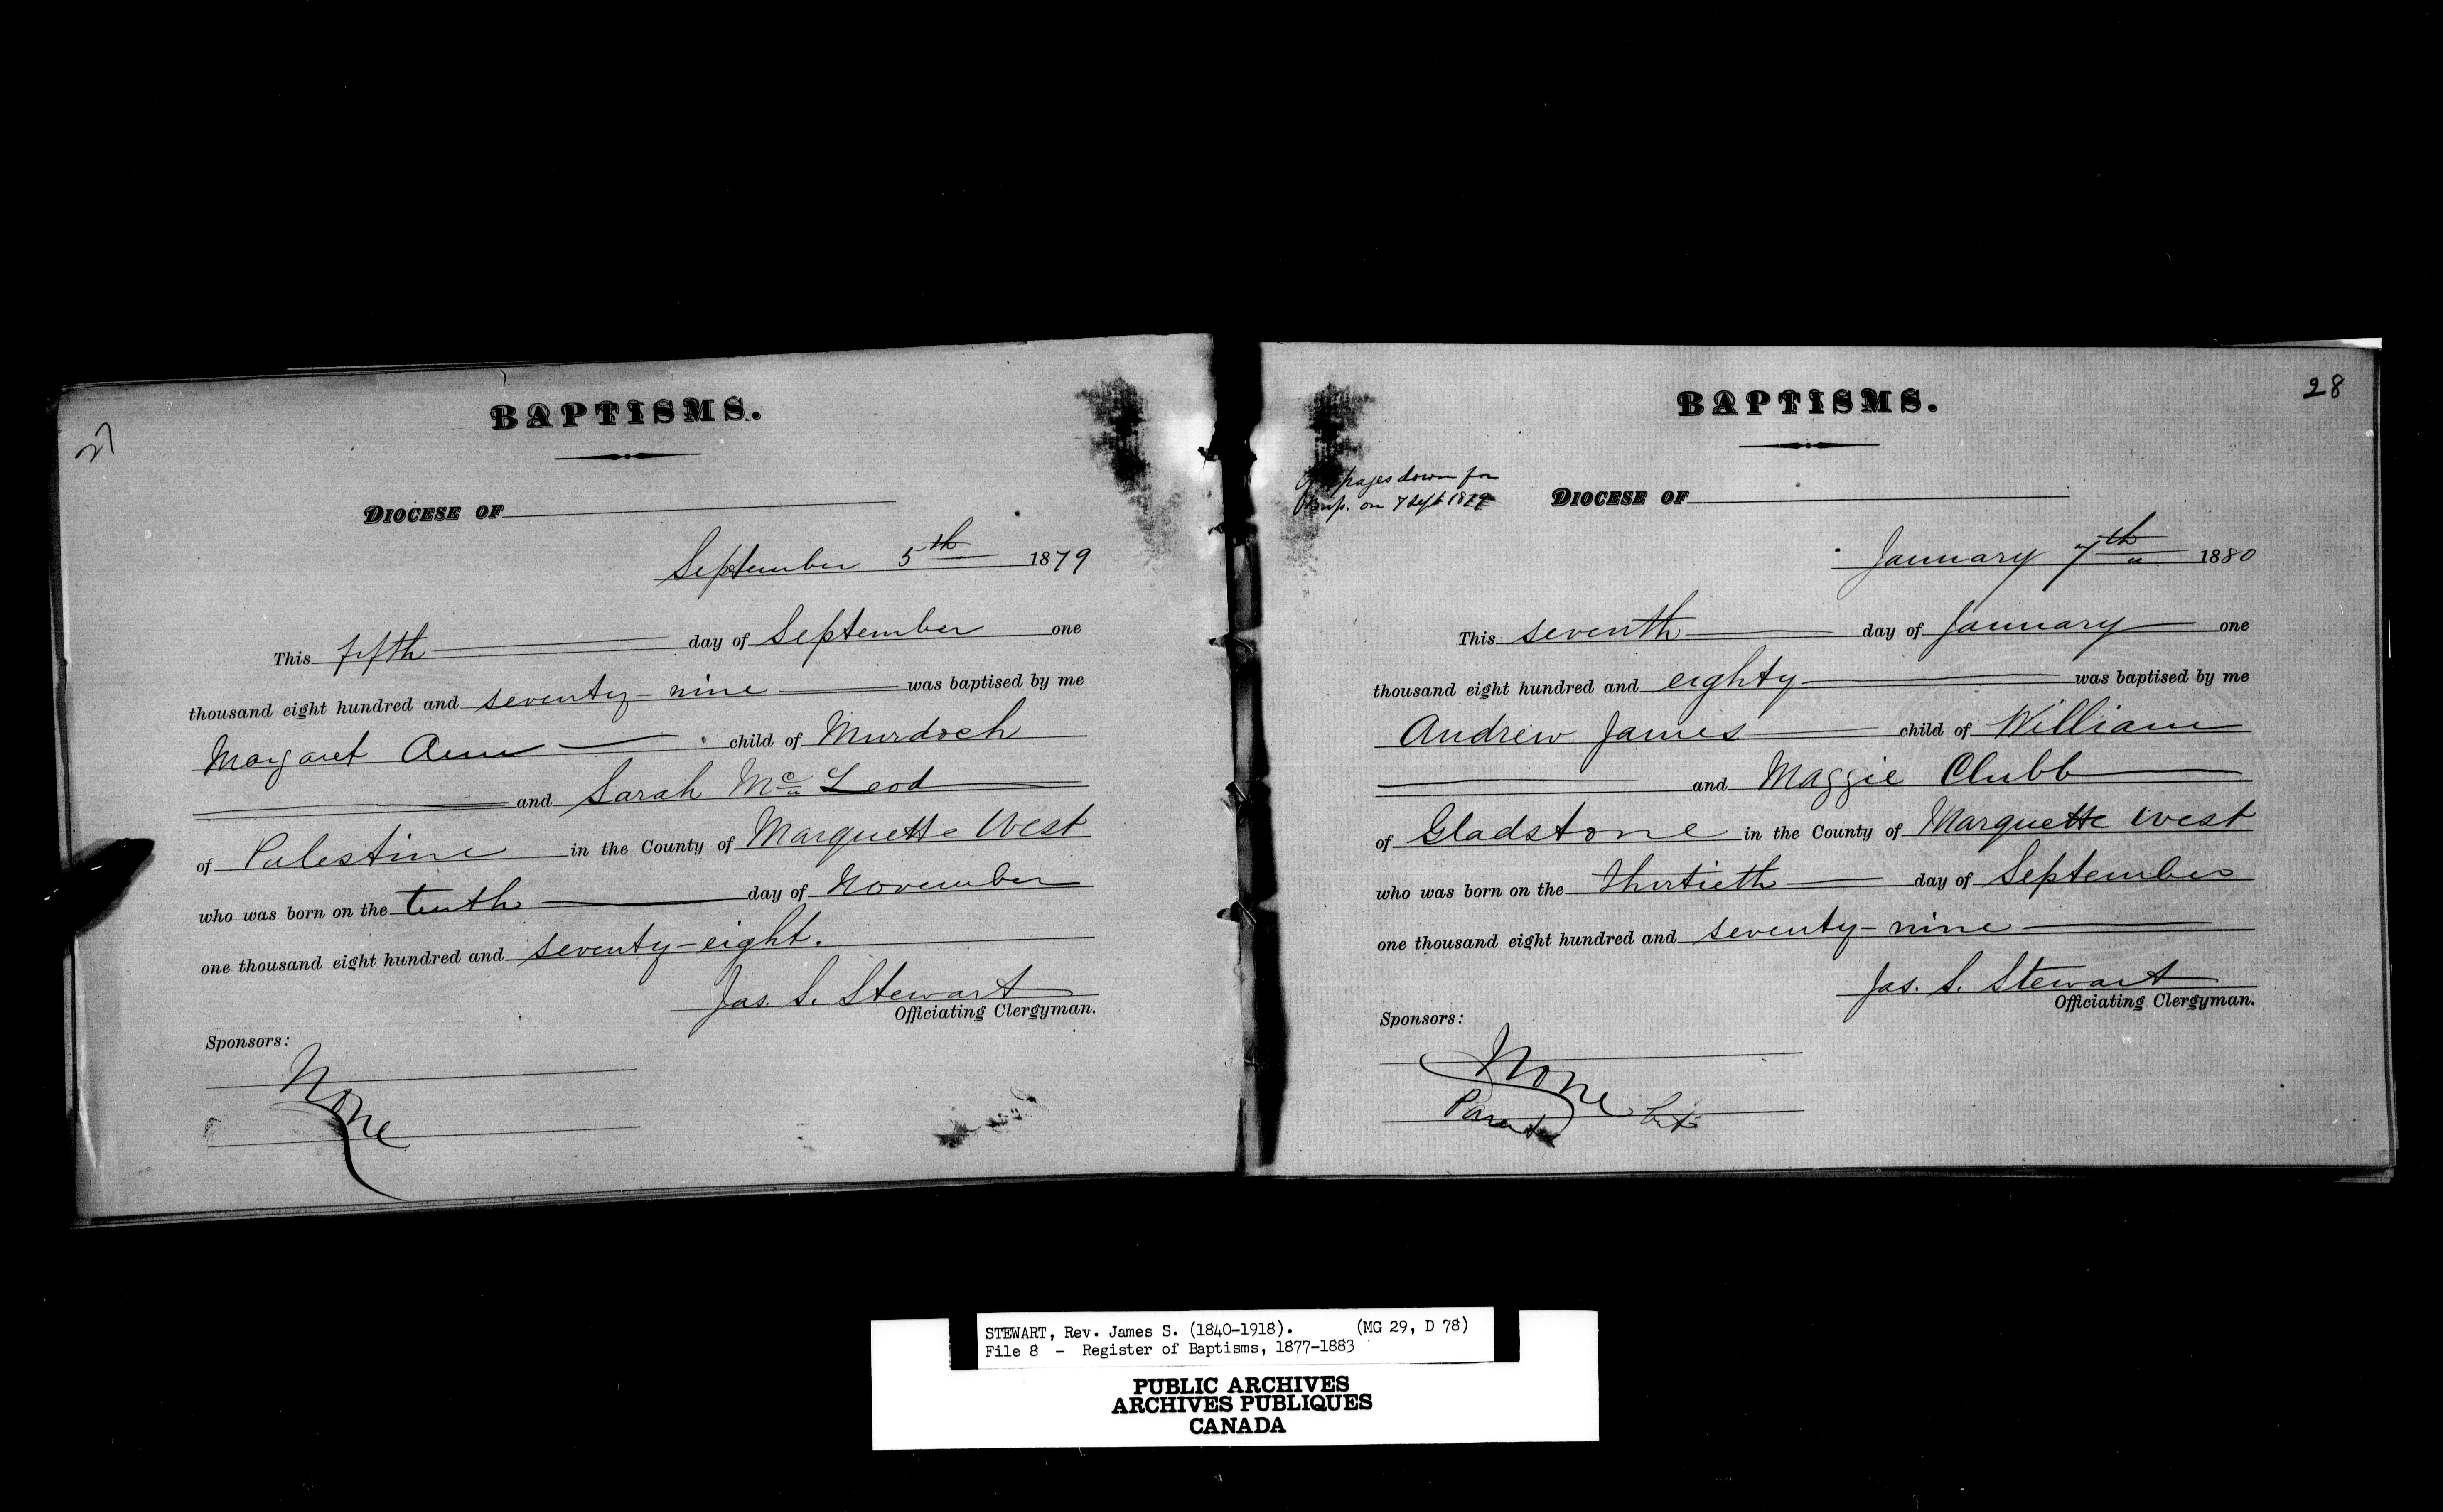 27
BAPTISMS.
DIOCESE OF
September 5th 1879
This fifth day of September one
thousand eight hundred and seventy-nine was baptised by me
Margaret Ann child of Murdoch
and Sarah Mc Leod
of Palestine in the County of Marquette West
who was born on the tenth day of November
one thousand eight hundred and seventy-eight.
Jas. S. Stewart
Officiating Clergyman.
Sponsors:
None
28
BAPTISMS.
pages down for
Bap. on 7 Sept 1879
DIOCESE OF
January 7th 1880
This seventh day of January one
thousand eight hundred and eighty was baptised by me
Andrew James child of William
and Maggie Clubb
of Gladstone in the County of Marquette West
who was born on the Thirtieth day of September
one thousand eight hundred and seventy-nine
Jas. S. Stewart
Officiating Clergyman.
Sponsors:
None but
Parents
STEWART, Rev. James S. (1840-1918). (MG 29, D 78)
File 8 - Register of Baptisms, 1877-1883
PUBLIC ARCHIVES
ARCHIVES PUBLIQUES
CANADA